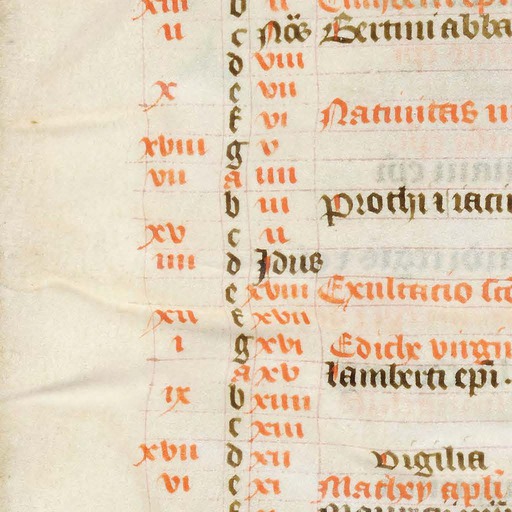 xiii b ii
ii c Nōs Bertini abba
d viii
x e vii
f vi Natiuitas
xviii g v
vii a iiii
b iii Prothi ⁊ iacin
xv c ii
iiii d Idus
e xviii Exultacio
xii f xvii
i g xvi Edithe virgin
a xv Lamberti epī.
ix b xiiii
c xiii
xvii d xii vigilia
vi e xi Mathey apli